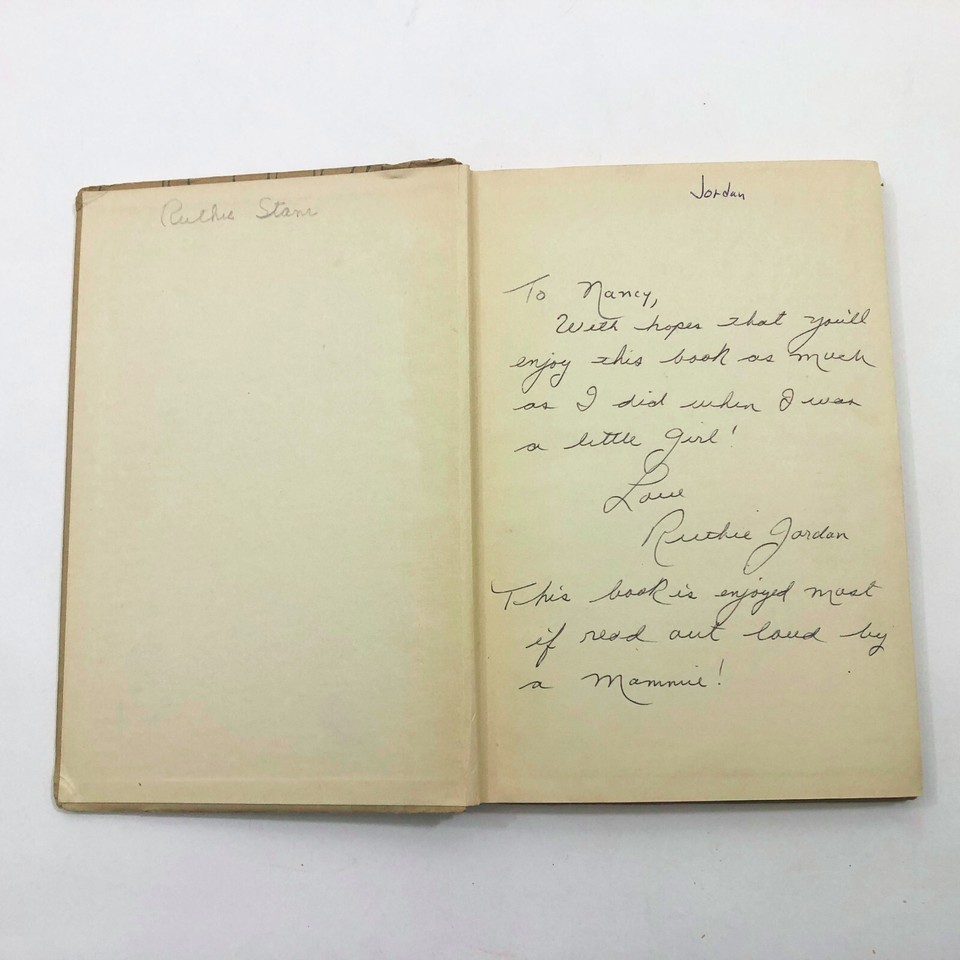 Ruthie
Jordan
To Nancy,
With hopes that you'll
enjoy this book as much
as I did when I was
a little girl!
Love
Ruthie Jordan
This book is enjoyed most
if read out loud by
a Mammie!